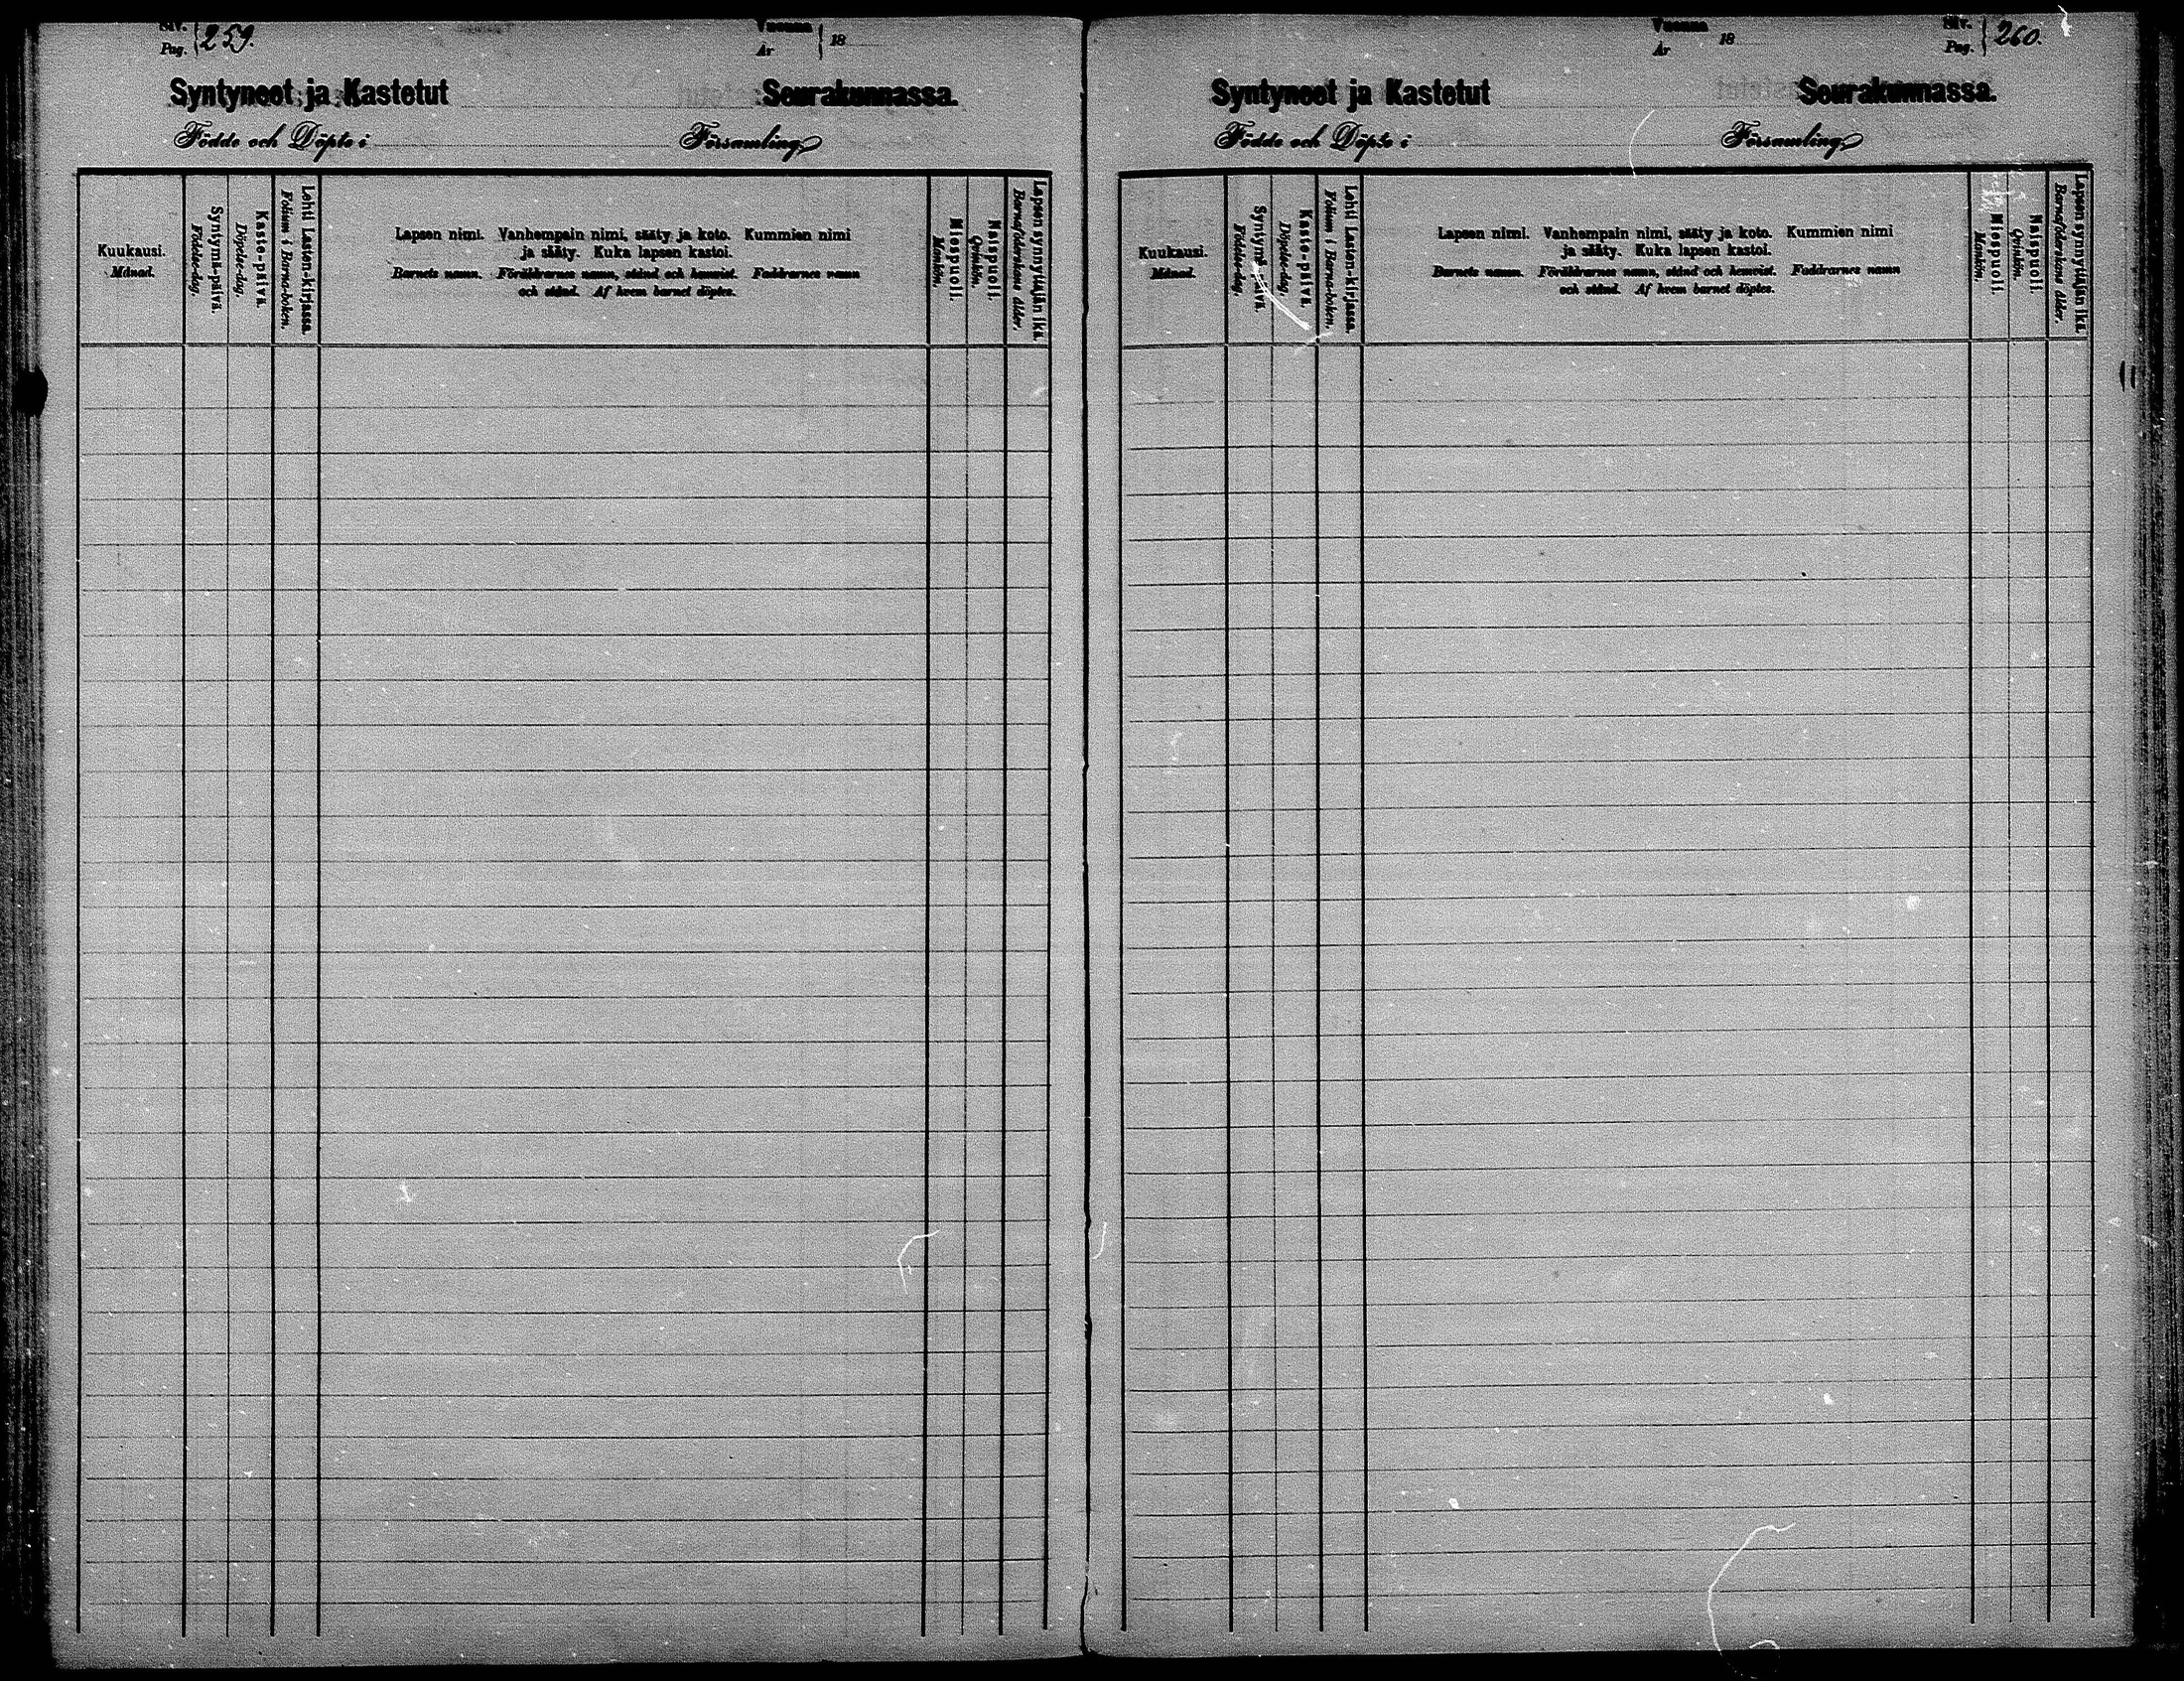 Siv.
Pag. 259.
Vuonna
År 18
Syntyneet ja Kastetut Seurakunnassa.
Födde och Döpte i Församling
Kuukausi.
Månad.
Syntymä-päivä.
Födelse-dag.
Kaste-päivä.
Döpelse-dag.
Lehti Lasten-kirjassa.
Folium i Barna-boken.
Lapsen nimi. Vanhempain nimi, sääty ja koto. Kummien nimi
ja sääty. Kuka lapsen kastoi.
Barnets namn. Föräldrarnes namn, stånd och hemvist. Faddrarnes namn
och stånd. Af hvem barnet döptes.
Miespuoli.
Mankön.
Naispuoli.
Qvinkön.
Lapsen synnyttäjän ikä.
Barnaföderskans ålder.
Vuonna
År 18
Siv.
Pag. 260.
Syntyneet ja Kastetut Seurakunnassa.
Födde och Döpte i Församling
Kuukausi.
Månad.
Syntymä-päivä.
Födelse-dag.
Kaste-päivä.
Döpelse-dag.
Lehti Lasten-kirjassa.
Folium i Barna-boken.
Lapsen nimi. Vanhempain nimi, sääty ja koto. Kummien nimi
ja sääty. Kuka lapsen kastoi.
Barnets namn. Föräldrarnes namn, stånd och hemvist. Faddrarnes namn
och stånd. Af hvem barnet döptes.
Miespuoli.
Mankön.
Naispuoli.
Qvinkön.
Lapsen synnyttäjän ikä.
Barnaföderskans ålder.